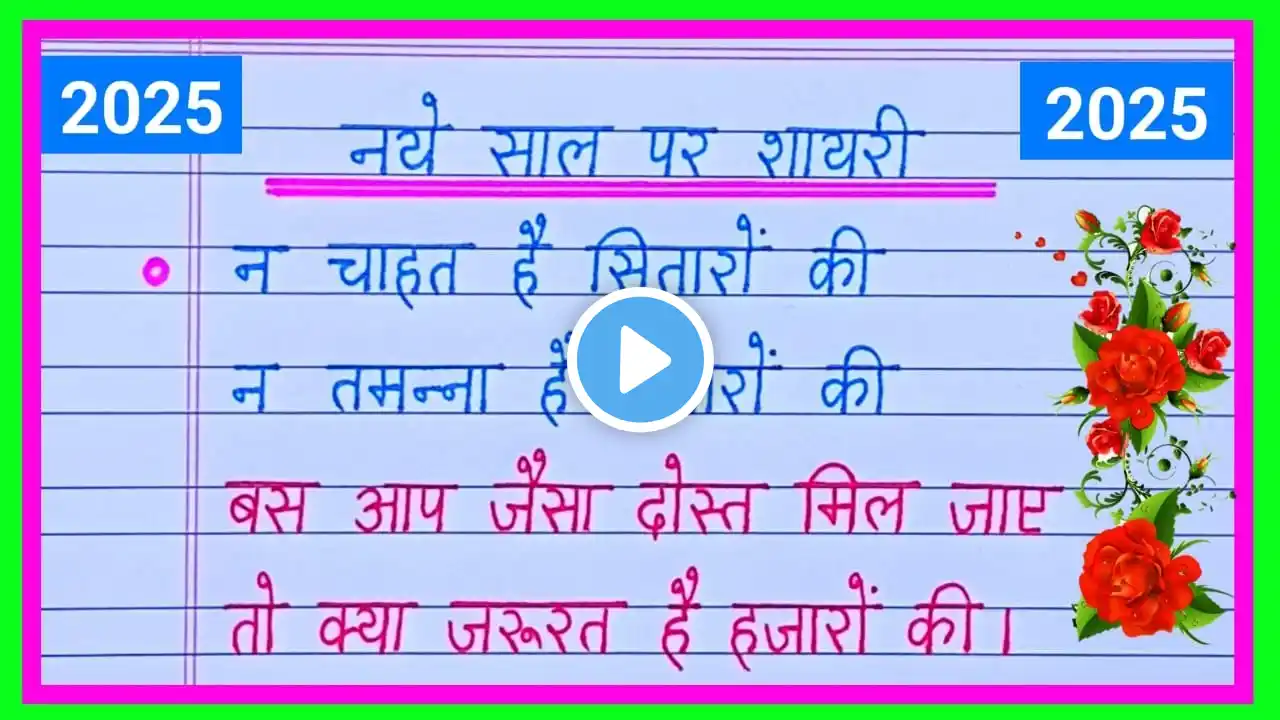 2025 2025
नये साल पर शायरी
न चाहत है सितारों की
न तमन्ना है की
बस आप जैसा दोस्त मिल जाए
तो क्या जरूरत है हजारों की।